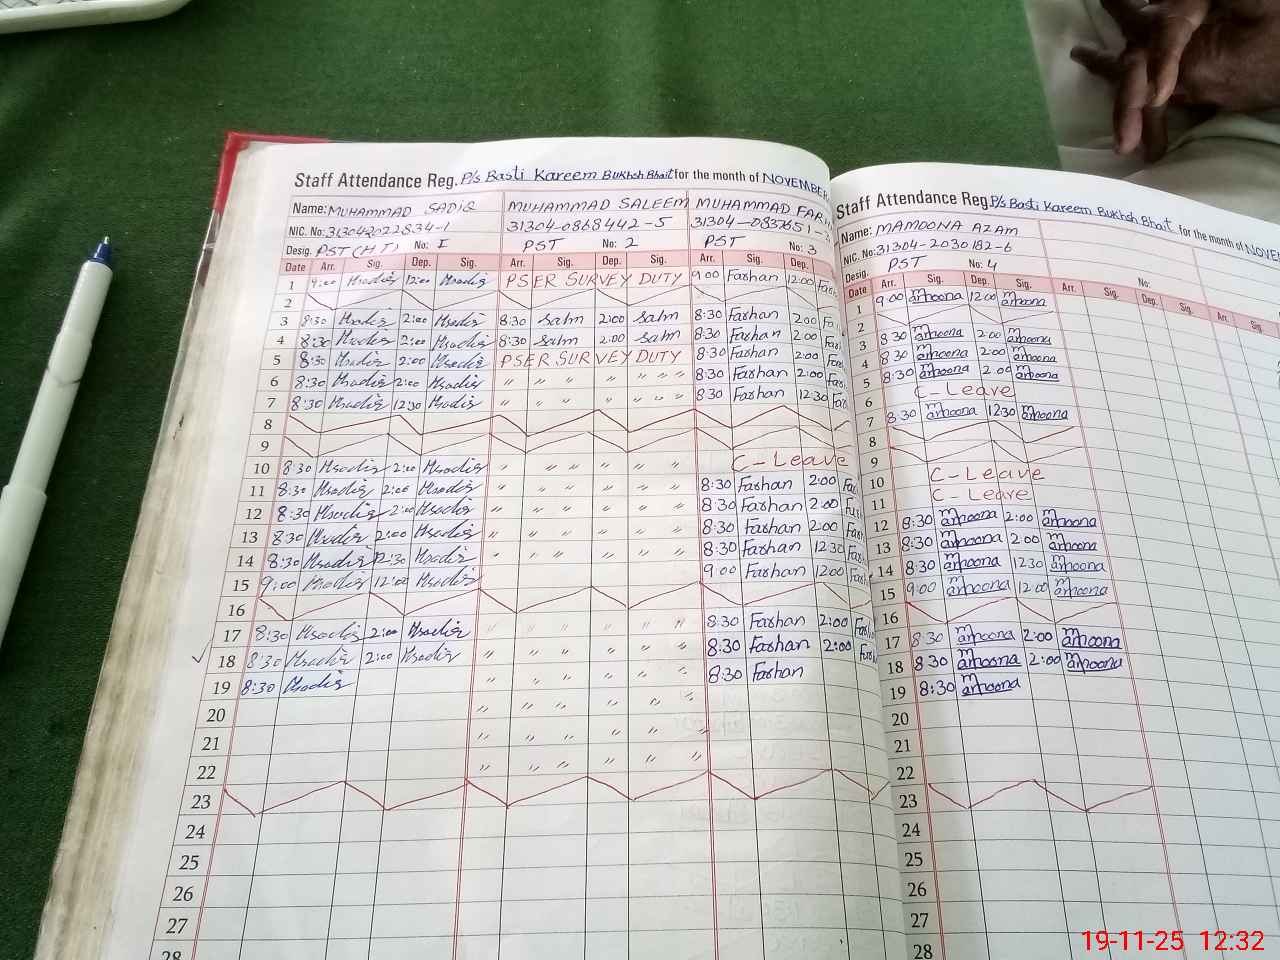 Staff Attendance Reg. P/s Basti Kareem Bukhsh Bhait for the month of NOVEMBER
Name: MUHAMMAD SADIQ MUHAMMAD SALEEM MUHAMMAD FAR
NIC. No: 31304-0868442-5 31304-0837651-
Desig. PST (H T) No: I PST No: 2 PST No: 3
Date Arr. Sig. Dep. Sig. Arr. Sig. Dep. Sig. Arr. Sig. Dep.
1 9:00 Hsadiq 12:00 Hsadiq PSER SURVEY DUTY 9:00 Farhan 12:00
2
3 8:30 Hsadiq 2:00 Hsadiq 8:30 Salm 2:00 Salm 8:30 Farhan 2:00
4 8:30 Hsadiq 2:00 Hsadiq 8:30 Salm 2:00 Salm 8:30 Farhan 2:00
5 8:30 Hsadiq 2:00 Hsadiq PSER SURVEY DUTY 8:30 Farhan 2:00
6 8:30 Hsadiq 2:00 Hsadiq " " " " " " 8:30 Farhan 2:00
7 8:30 Hsadiq 12:30 Hsadiq " " " " " " 8:30 Farhan 12:30
8
9
10 8:30 Hsadiq 2:00 Hsadiq " " " " " C-Leave
11 8:30 Hsadiq 2:00 Hsadiq " " " " " 8:30 Farhan 2:00
12 8:30 Hsadiq 2:00 Hsadiq " " " " " 8:30 Farhan 2:00
13 8:30 Hsadiq 2:00 Hsadiq " " " " " 8:30 Farhan 2:00
14 8:30 Hsadiq 12:30 Hsadiq " " " " " 8:30 Farhan 12:30
15 9:00 Hsadiq 12:00 Hsadiq " " " " " 9:00 Farhan 12:00
16
17 8:30 Hsadiq 2:00 Hsadiq " " " " " 8:30 Farhan 2:00
18 8:30 Hsadiq 2:00 Hsadiq " " " " " 8:30 Farhan 2:00
19 8:30 Hsadiq " " " " " 8:30 Farhan
20 " " " " "
21 " " " " " "
22 " " " " " "
23
24
25
26
27
28
Staff Attendance Reg. P/s Basti Kareem Bukhsh Bhait for the month of
Name: MAMOONA AZAM
NIC. No: 31304-2030182-6
Desig. PST No: 4 No:
Date Arr. Sig. Dep. Sig. Arr. Sig. Dep. Sig. Arr. Sig.
1 9:00 mamoona 12:00 mamoona
2
3 8:30 mamoona 2:00 mamoona
4 8:30 mamoona 2:00 mamoona
5 8:30 mamoona 2:00 mamoona
6 C-Leave
7 8:30 mamoona 12:30 mamoona
8
9
10 C-Leave
11 C-Leave
12 8:30 mamoona 2:00 mamoona
13 8:30 mamoona 2:00 mamoona
14 8:30 mamoona 12:30 mamoona
15 9:00 mamoona 12:00 mamoona
16
17 8:30 mamoona 2:00 mamoona
18 8:30 mamoona 2:00 mamoona
19 8:30 mamoona
20
21
22
23
24
25
26
27
28
19-11-25 12:32